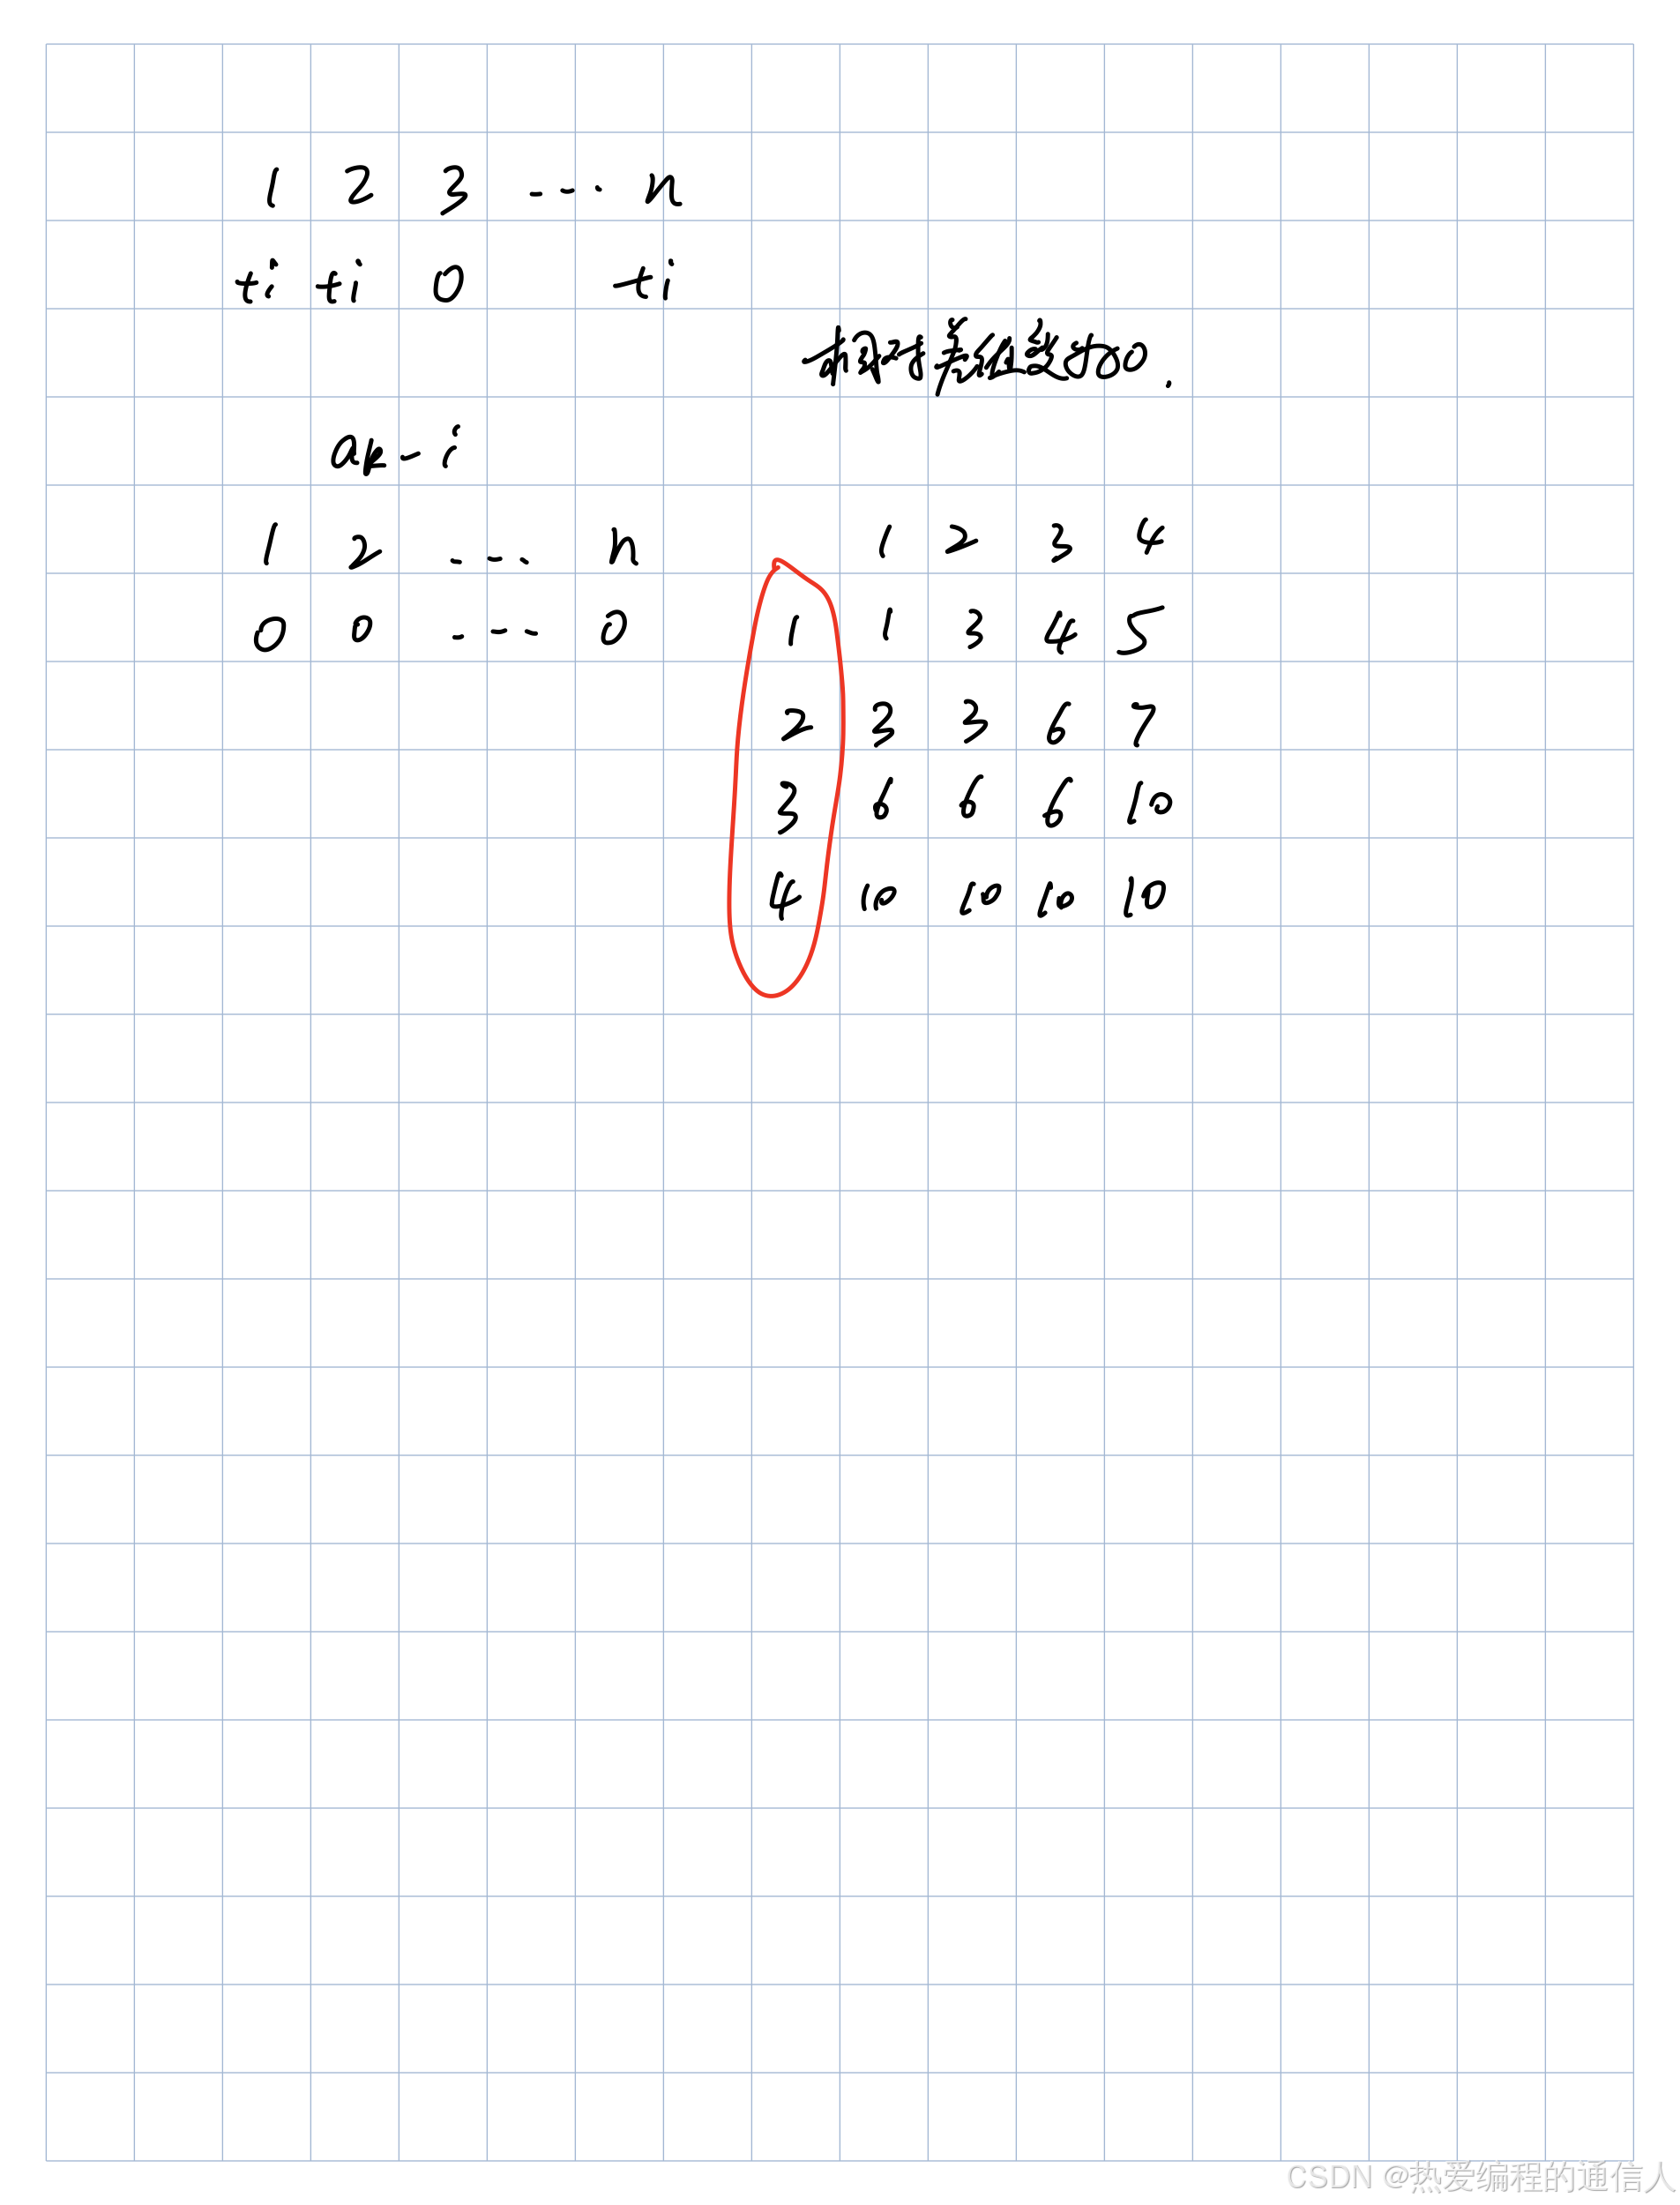 1 2 3 ... n
+i +i 0 +i
相对差值变为0.
ak - i
1 2 ... n
0 0 ... 0
1 2 3 4
1 1 3 4 5
2 3 3 6 7
3 6 6 6 10
4 10 10 10 10
CSDN @热爱编程的通信人